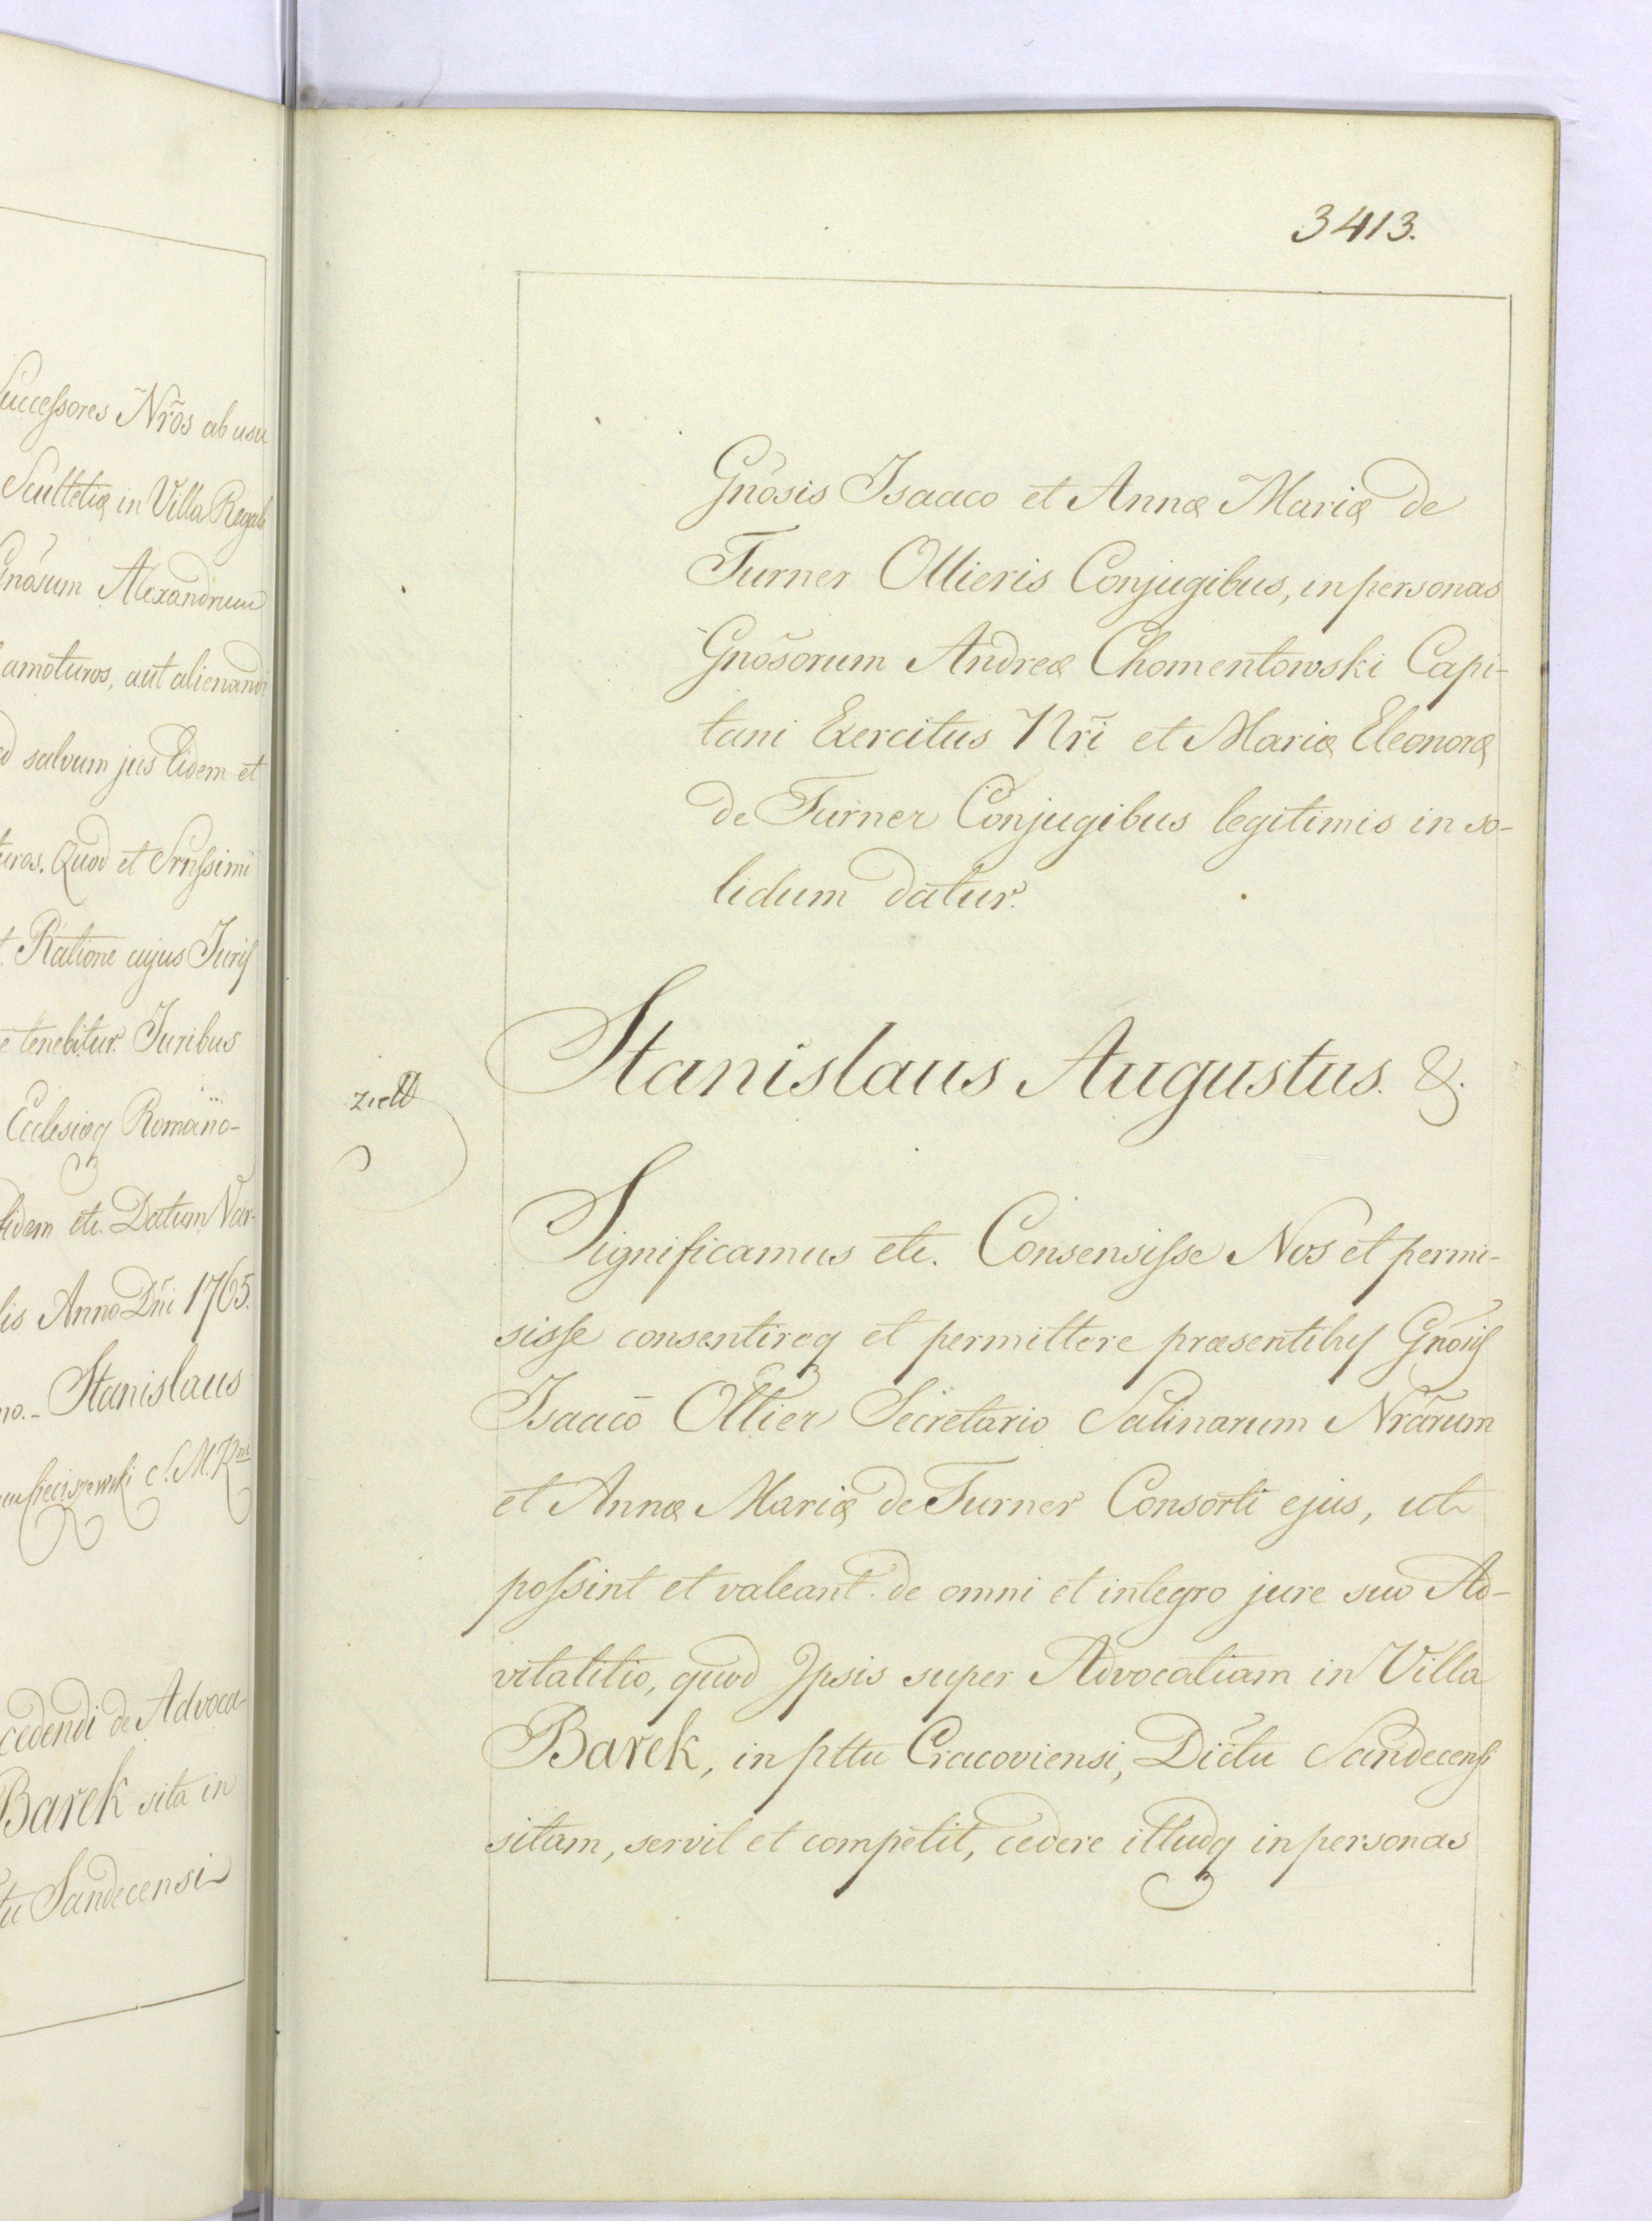 uccessores Nr̃os ab usu
Scultetiæ in Villa Regali
Gnosum Alexandrum
amoturos, aut alienandi
salvum jus Eidem et
uros. Quod et Srnssimi
Ratione cujus Juris
e tenebitur. Juribus
Ecclesiæq Romano-
fidem etc. Datum Var-
lis Anno Dñi 1765.
no. _ Stanislaus
S. M. R
cedendi de Advoca-
Barek sita in
tu Sandecensi
3413.
Gnõsis Isaaco et Annæ Mariæ de
Turner Ollieris Conjugibus, in personas
Gnõsorum Andreæ Chomentowski Capi-
tani Exercitus Nr̃i et Mariæ Eleonoræ
de Turner Conjugibus legitimis in so-
lidum datur.
Stanislaus Augustus. &.
Significamus etc. Consensisse Nos et permi-
sisse consentireq et permittere præsentibus Gnõsis
Isaaco Ollier Secretario Salinarum Nrarum
et Annæ Mariæ de Turner Consorti ejus, ut
possint et valeant de omni et integro jure suo Ad-
vitalitio, quod Ipsis super Advocatiam in Villa
Barek, in pttu Cracoviensi, Dictu Sandecensi
sitam, servit et competit, cedere illudq in personas